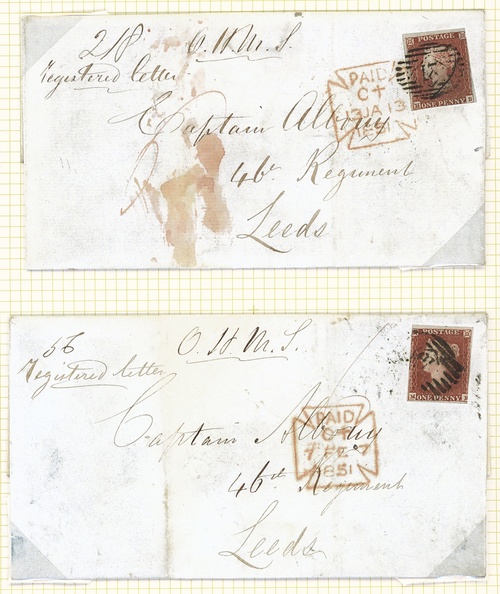 218 O.H.M.S.
Registered letter
POSTAGE
ONE PENNY
PAID
CT
13 JA 13
1851
Captain Albony
46th Regiment
Leeds
56 O.H.M.S.
Registered letter
POSTAGE
ONE PENNY
PAID
CT
7 FE 7
1851
Captain Albony
46th Regiment
Leeds